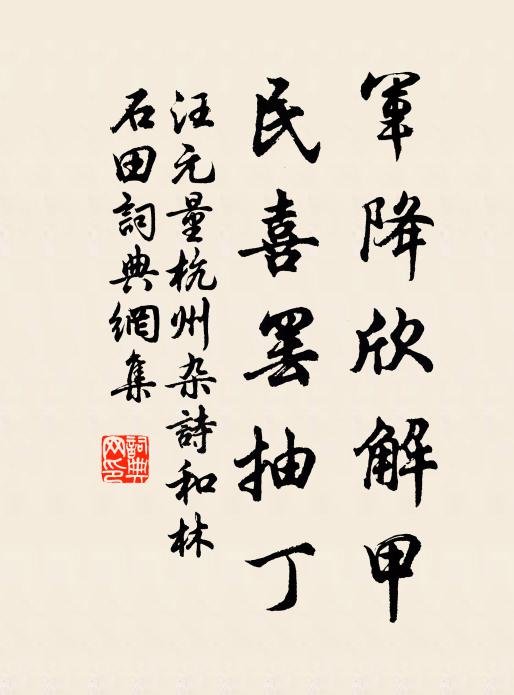 軍降欣解甲
民喜罢抽丁
汪元量杭州杂詩和林
石田詞典網集
詞典网印